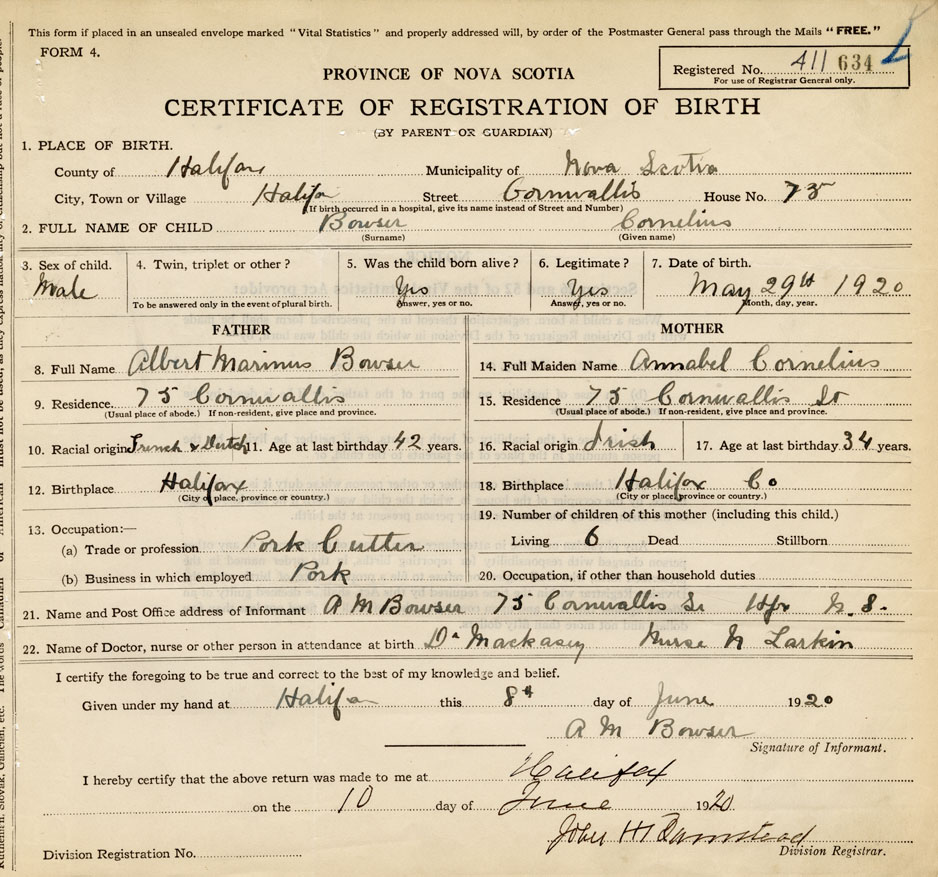 This form if placed in an unsealed envelope marked "Vital Statistics" and properly addressed will, by order of the Postmaster General pass through the Mails "FREE."
FORM 4.
Registered No. 411 634
For use of Registrar General only.
PROVINCE OF NOVA SCOTIA
CERTIFICATE OF REGISTRATION OF BIRTH
(BY PARENT OR GUARDIAN)
1. PLACE OF BIRTH.
County of Halifax Municipality of Nova Scotia
City, Town or Village Halifax Street Cornwallis House No. 75
(If birth occurred in a hospital, give its name instead of Street and Number)
2. FULL NAME OF CHILD Bowser Cornelius
(Surname) (Given name)
3. Sex of child. 4. Twin, triplet or other? 5. Was the child born alive? 6. Legitimate? 7. Date of birth.
Male Yes Yes May 29th 1920
To be answered only in the event of plural birth. Answer, yes or no. Answer, yes or no. Month, day, year.
FATHER MOTHER
8. Full Name Albert Marinus Bowser 14. Full Maiden Name Annabel Cornelius
9. Residence. 75 Cornwallis 15. Residence 75 Cornwallis St
(Usual place of abode.) If non-resident, give place and province. (Usual place of abode.) If non-resident, give place and province.
10. Racial origin French & Dutch 11. Age at last birthday 42 years. 16. Racial origin Irish 17. Age at last birthday 34 years.
12. Birthplace Halifax 18. Birthplace Halifax Co
(City or place, province or country.) (City or place, province or country.)
13. Occupation:— 19. Number of children of this mother (including this child.)
(a) Trade or profession Pork Cutter Living 6 Dead Stillborn
(b) Business in which employed Pork 20. Occupation, if other than household duties
21. Name and Post Office address of Informant A M Bowser 75 Cornwallis St Hfx N. S.
22. Name of Doctor, nurse or other person in attendance at birth Dr Mackasey Nurse N Larkin
I certify the foregoing to be true and correct to the best of my knowledge and belief.
Given under my hand at Halifax this 8th day of June 1920
A M Bowser
Signature of Informant.
I hereby certify that the above return was made to me at Halifax
on the 10 day of June 1920
John H Barnstead
Division Registration No. Division Registrar.